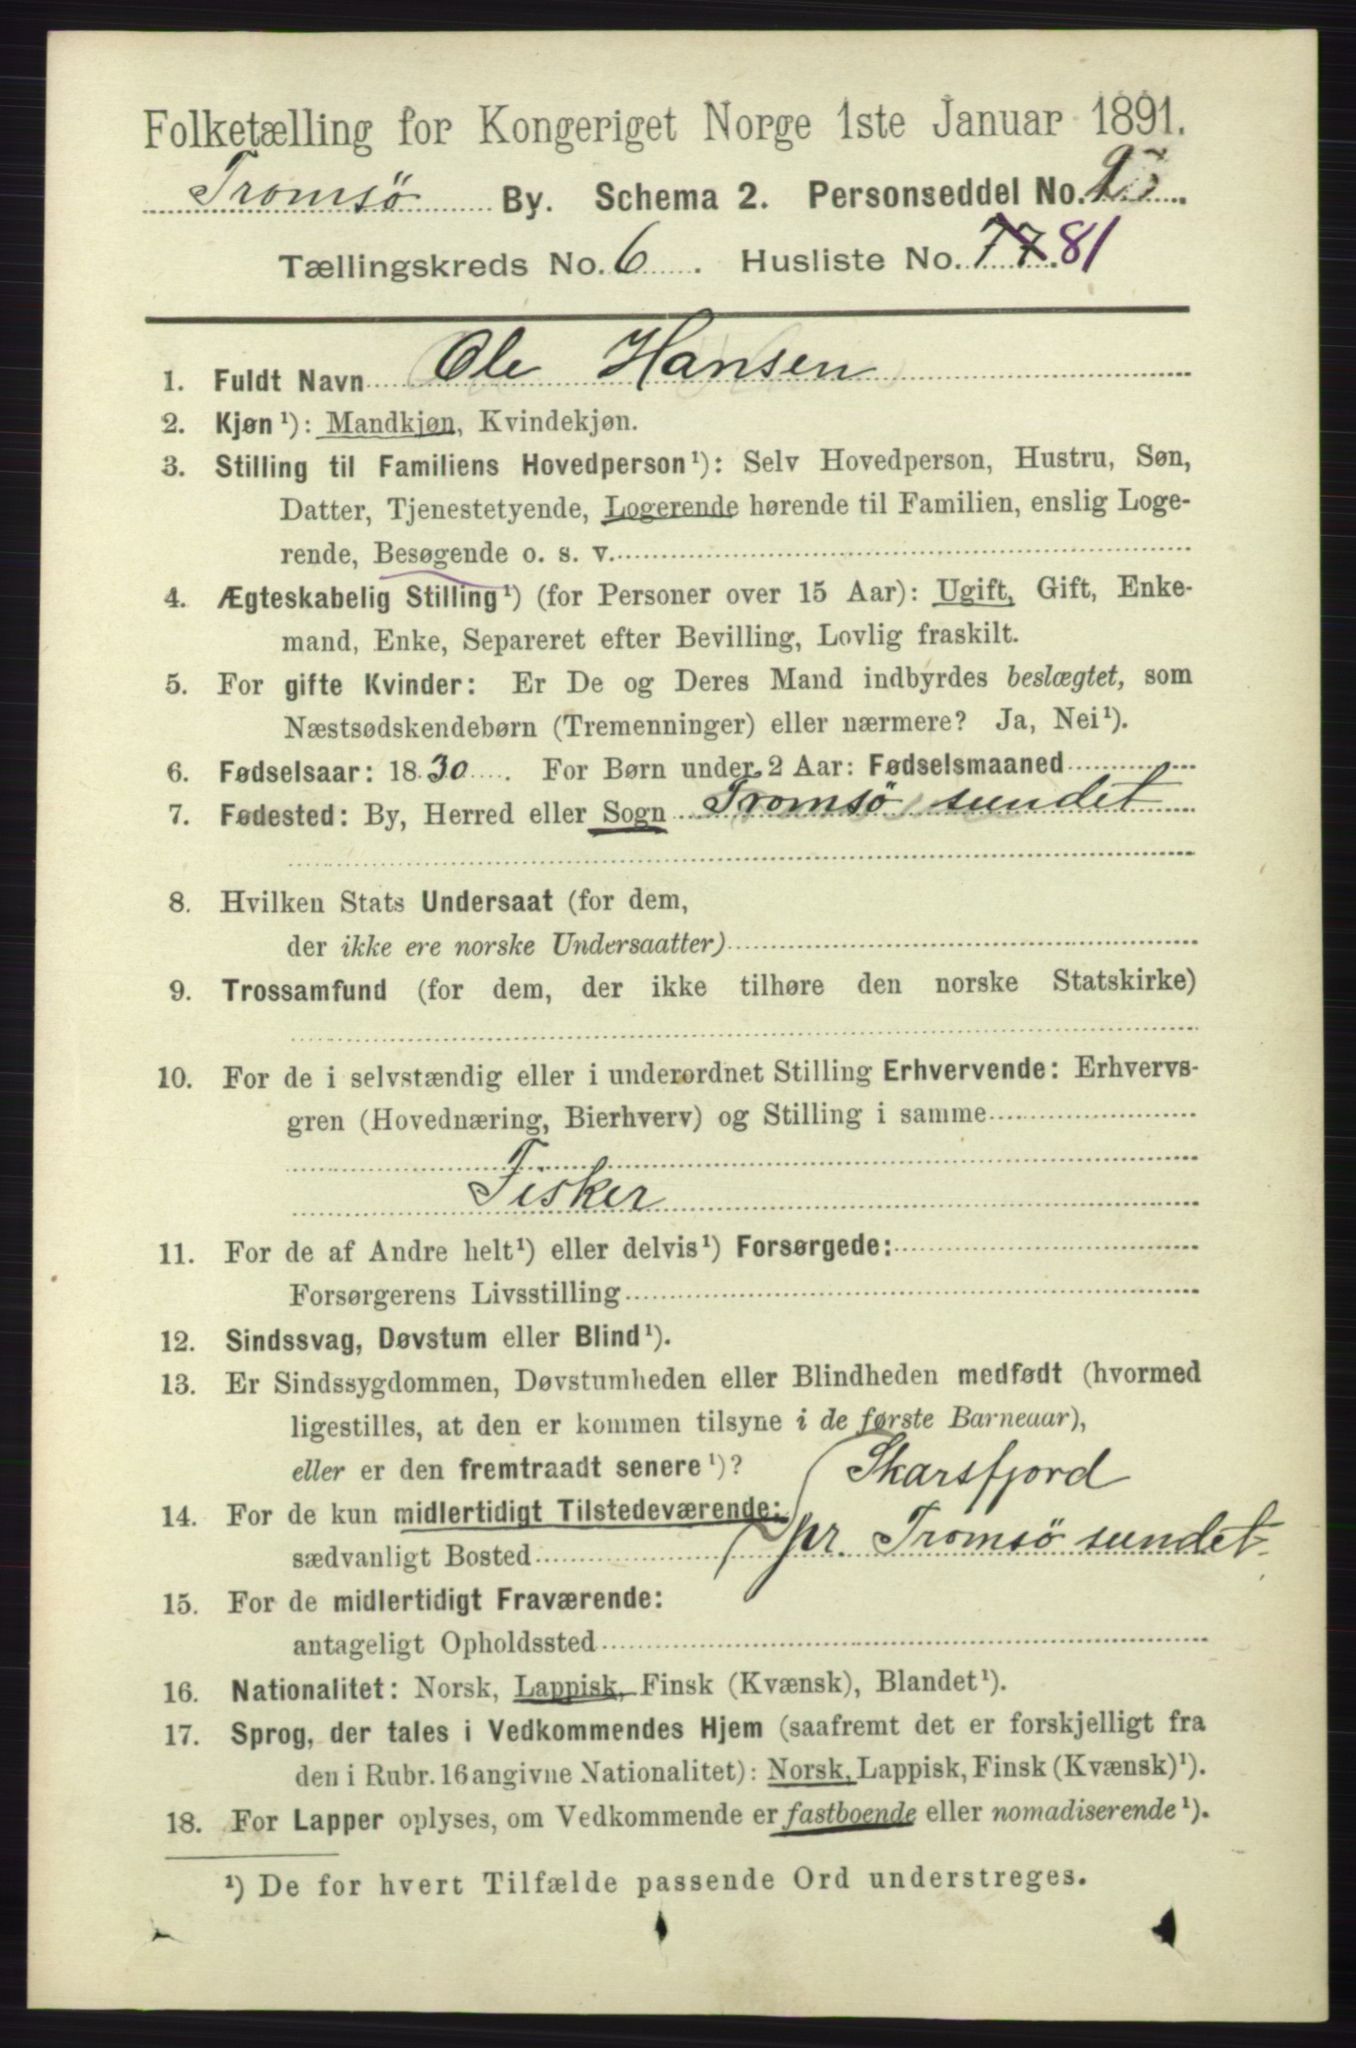 Folketælling for Kongeriget Norge 1ste Januar 1891.
Tromsø By. Schema 2. Personseddel No.
Tællingskreds No. 6. Husliste No. 77 81
1. Fuldt Navn Ole Hansen
2. Kjøn ¹): Mandkjøn, Kvindekjøn.
3. Stilling til Familiens Hovedperson ¹): Selv Hovedperson, Hustru, Søn,
Datter, Tjenestetyende, Logerende hørende til Familien, enslig Loge-
rende, Besøgende o. s. v.
4. Ægteskabelig Stilling ¹) (for Personer over 15 Aar): Ugift, Gift, Enke-
mand, Enke, Separeret efter Bevilling, Lovlig fraskilt.
5. For gifte Kvinder: Er De og Deres Mand indbyrdes beslægtet, som
Næstsødskendebørn (Tremenninger) eller nærmere? Ja, Nei ¹).
6. Fødselsaar: 1830. For Børn under 2 Aar: Fødselsmaaned
7. Fødested: By, Herred eller Sogn Tromsø sundet
8. Hvilken Stats Undersaat (for dem,
der ikke ere norske Undersaatter)
9. Trossamfund (for dem, der ikke tilhøre den norske Statskirke)
10. For de i selvstændig eller i underordnet Stilling Erhvervende: Erhvervs-
gren (Hovednæring, Bierhverv) og Stilling i samme
Fisker
11. For de af Andre helt ¹) eller delvis ¹) Forsørgede:
Forsørgerens Livsstilling
12. Sindssvag, Døvstum eller Blind ¹).
13. Er Sindssygdommen, Døvstumheden eller Blindheden medfødt (hvormed
ligestilles, at den er kommen tilsyne i de første Barneaar),
eller er den fremtraadt senere ¹)? Skarsfjord
14. For de kun midlertidigt Tilstedeværende:
sædvanligt Bosted pr. Tromsø sundet.
15. For de midlertidigt Fraværende:
antageligt Opholdssted
16. Nationalitet: Norsk, Lappisk, Finsk (Kvænsk), Blandet ¹).
17. Sprog, der tales i Vedkommendes Hjem (saafremt det er forskjelligt fra
den i Rubr. 16 angivne Nationalitet): Norsk, Lappisk, Finsk (Kvænsk) ¹).
18. For Lapper oplyses, om Vedkommende er fastboende eller nomadiserende ¹).
¹) De for hvert Tilfælde passende Ord understreges.